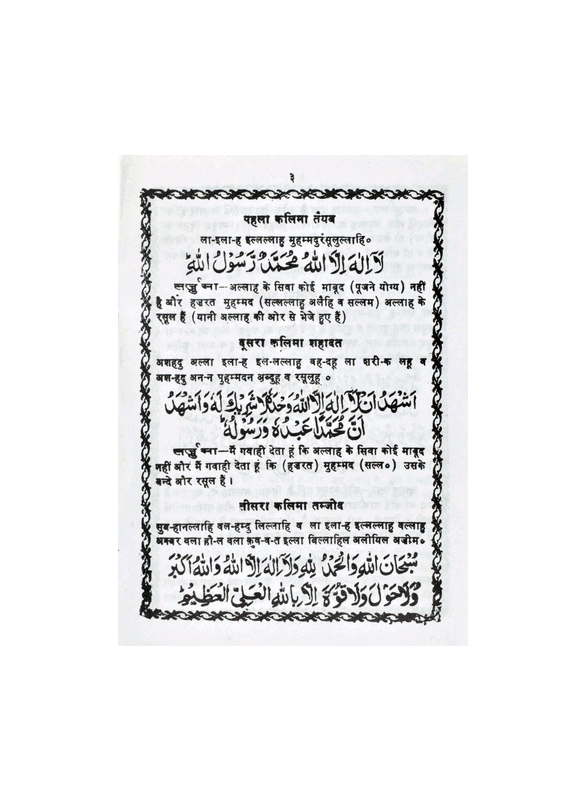 ३
पहला कलिमा तैयब
ला-इला-ह इल्लल्लाहु मुहम्मदुर्रसूलुल्लाहि०
لَا إِلٰهَ إِلَّا اللّٰهُ مُحَمَّدٌ رَّسُوْلُ اللّٰهِ ؕ
तर्जुमा—अल्लाह के सिवा कोई माबूद (पूजने योग्य) नहीं
है और हज़रत मुहम्मद (सल्लल्लाहु अलैहि व सल्लम) अल्लाह के
रसूल हैं (यानी अल्लाह की ओर से भेजे हुए हैं)
दूसरा कलिमा शहादत
अशहदु अल्ला इला-ह इल-लल्लाहु वह-दहू ला शरी-क लहू व
अश-हदु अन-न मुहम्मदन अब्दुहू व रसूलुहू ०
اَشْهَدُ اَنْ لَّا اِلٰهَ اِلَّا اللّٰهُ وَحْدَهٗ لَا شَرِيْكَ لَهٗ وَاَشْهَدُ
اَنَّ مُحَمَّدًا عَبْدُهٗ وَرَسُوْلُهٗ ؕ
तर्जुमा—मैं गवाही देता हूं कि अल्लाह के सिवा कोई माबूद
नहीं और मैं गवाही देता हूं कि (हज़रत) मुहम्मद (सल्ल०) उसके
बन्दे और रसूल हैं ।
तीसरा कलिमा तम्जीद
सुब-हानल्लाहि वल-हम्दु लिल्लाहि व ला इला-ह इल्लल्लाहु वल्लाहु
अक्बर वला हौ-ल वला क़ुव-व-त इल्ला बिल्लाहिल अलीयिल अज़ीम०
سُبْحَانَ اللّٰهِ وَالْحَمْدُ لِلّٰهِ وَلَا اِلٰهَ اِلَّا اللّٰهُ وَاللّٰهُ اَكْبَرُ
وَلَا حَوْلَ وَلَا قُوَّةَ اِلَّا بِاللّٰهِ الْعَلِيِّ الْعَظِيْمِ ؕ